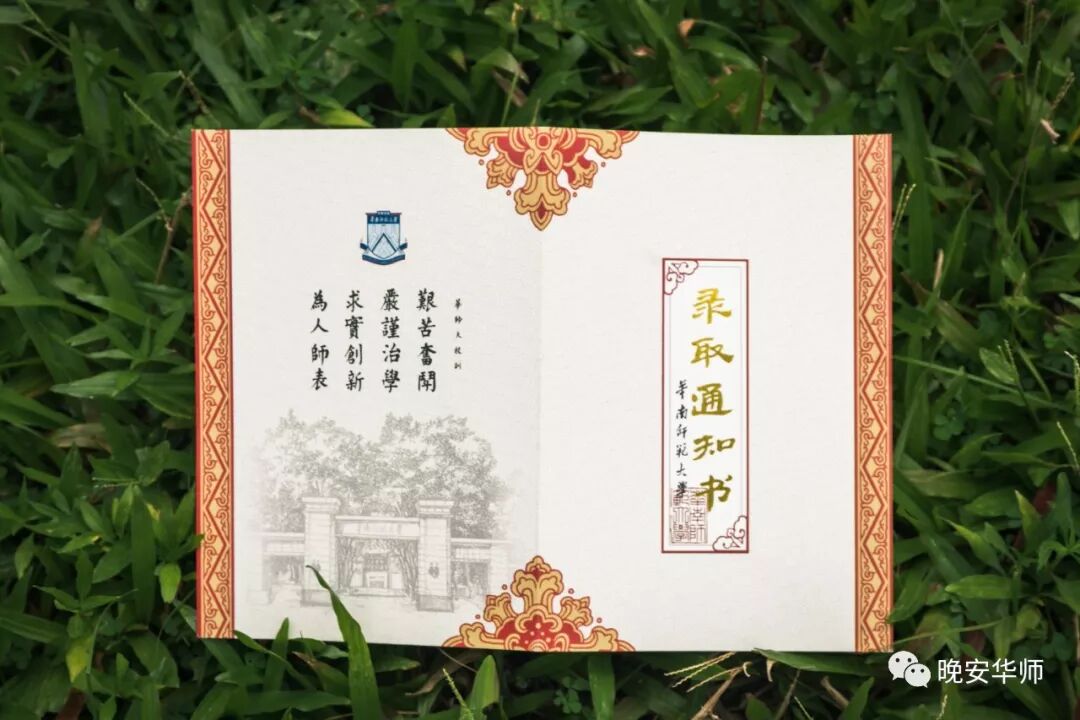 華師大校訓
艱苦奮鬥
嚴謹治學
求實創新
為人師表
录取通知书
華南師範大學
晚安华师